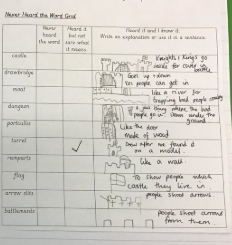 Never Heard the Word Grid
Never heard the word
Heard it but not sure what it means
Heard it and I know it.
Write an explanation or use it in a sentence.
castle
Knights + Kings go
inside for cover in
battle
drawbridge
Goes up + down
so people can get in
moat
Like a river for
trapping bad people
dungeon
where the bad
people go. Down under the
ground
portcullis
Like the door
made of wood
turret
✓
Drew after we found it
on a model.
ramparts
Like a wall.
flag
To show people which
castle they live in.
arrow slits
people shoot arrows
battlements
people shoot arrows
from them.